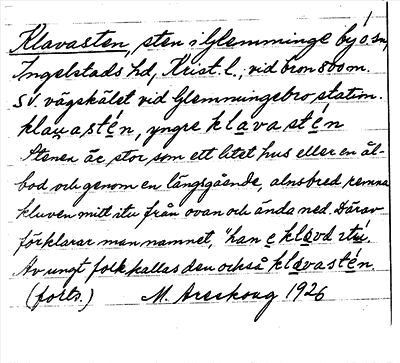 Klavasten, sten i Glemminge by o. sn,
Ingelstads hd, Krist. l., vid bron 800 m.
SV. vägskälet vid Glemmingebro station.
klauastén, yngre klavastén
Stenen är stor som ett litet hus eller en ål-
bod och genom en längsgående, alnsbred remna
kluven mitt itu från ovan och ända ned. Därav
förklarar man namnet, "han e klavd itú.
Av ungt folk kallas den också klavastén.
(forts.) M. Areskoug 1926